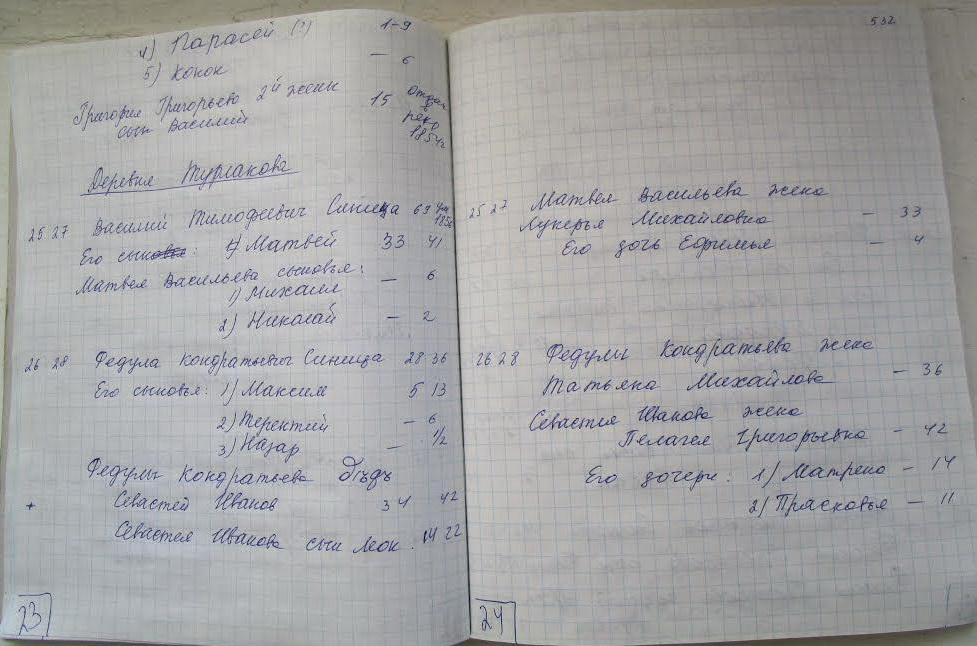 4) Парасей (?) 1-9
5) Конон — 6
Григория Григорьева 2й жены
сын Василий 15 отдан
в
рекр
1854г
Деревня Турлакова
25 27 Василий Тимофеевич Синица 69 ум
1856
Его сыновья: 1) Матвей 33 41
Матвея Васильева сыновья:
1) Михаил — 6
2) Николай — 2
26 28 Федула Кондратьевич Синица 28 36
Его сыновья: 1) Максим 5 13
2) Терентий — 6
3) Назар — 1/2
Федулы Кондратьева дѣдъ
+ Севастей Иванов 34 42
Севастея Иванова сын Леон. 14 22
23
532
25 27 Матвея Васильева жена
Лукерья Михайловна — 33
Его дочь Ефимья — 4
26 28 Федулы Кондратьева жена
Татьяна Михайлова — 36
Севастея Иванова жена
Пелагея Григорьевна — 42
Его дочери: 1) Матрена — 14
2) Прасковья — 11
24